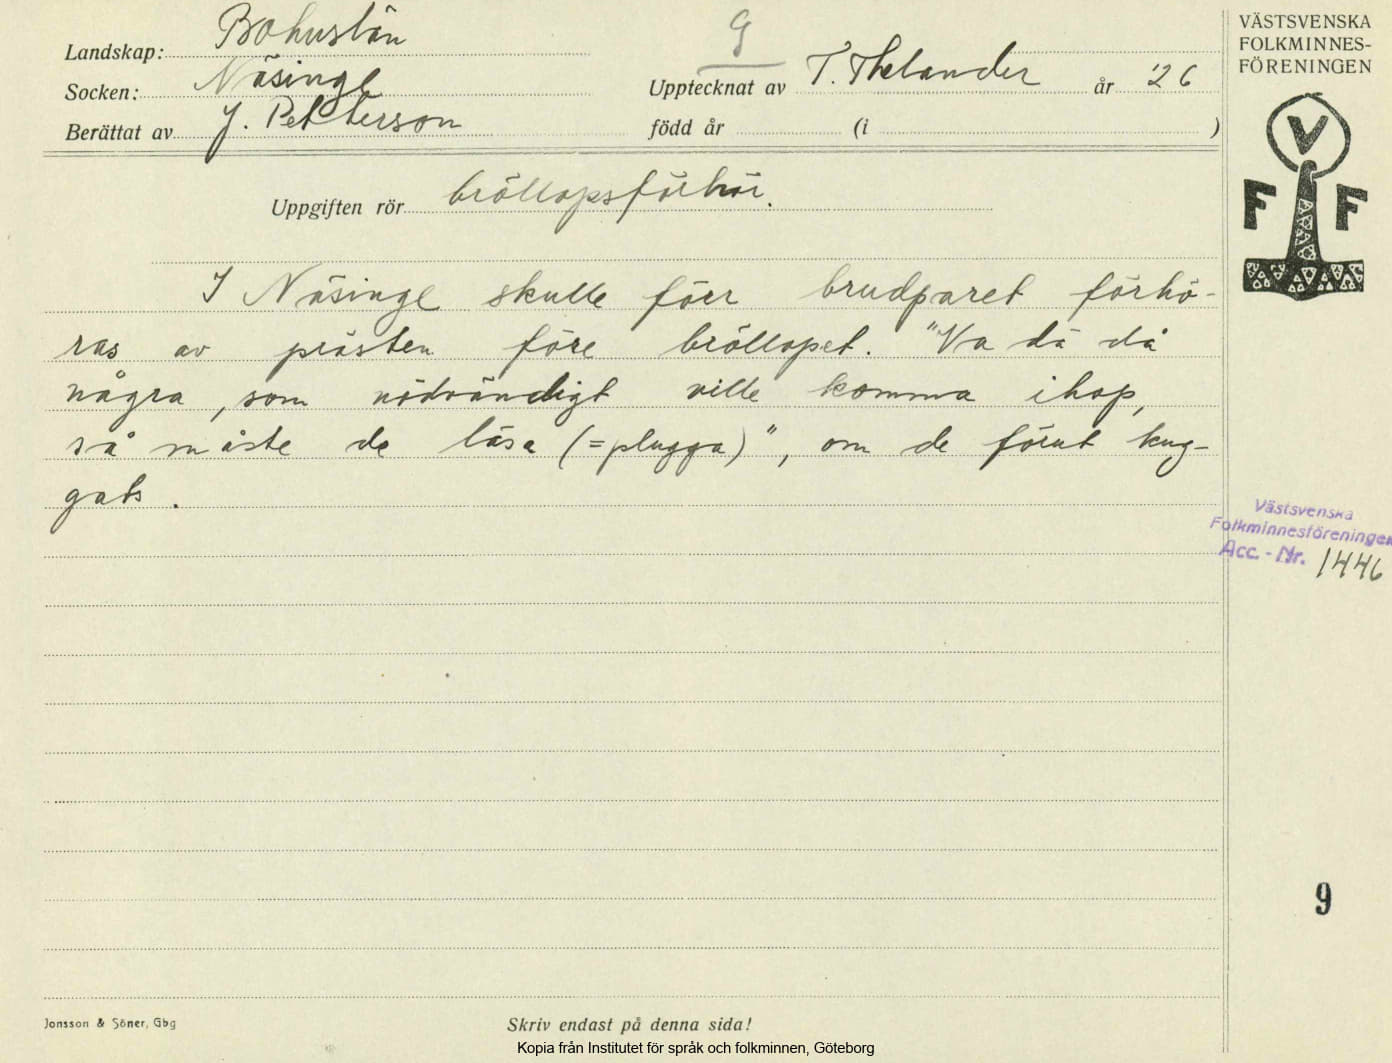 Landskap: Bohuslän
Socken: Näsinge
Berättat av J. Petterson
G
Upptecknat av T. Thelander år '26
född år (i )
VÄSTSVENSKA
FOLKMINNES-
FÖRENINGEN
V
F F
Uppgiften rör bröllopsförhör.
I Näsinge skulle förr brudparet förhö-
ras av prästen före bröllopet. "Va dä då
några, som nödvändigt ville komma ihop,
så måste de läsa (=plugga)", om de förut kug-
gats.
Västsvenska
Folkminnesföreningen
Acc. - Nr. 1446
9
Jonsson & Söner, Gbg
Skriv endast på denna sida!
Kopia från Institutet för språk och folkminnen, Göteborg